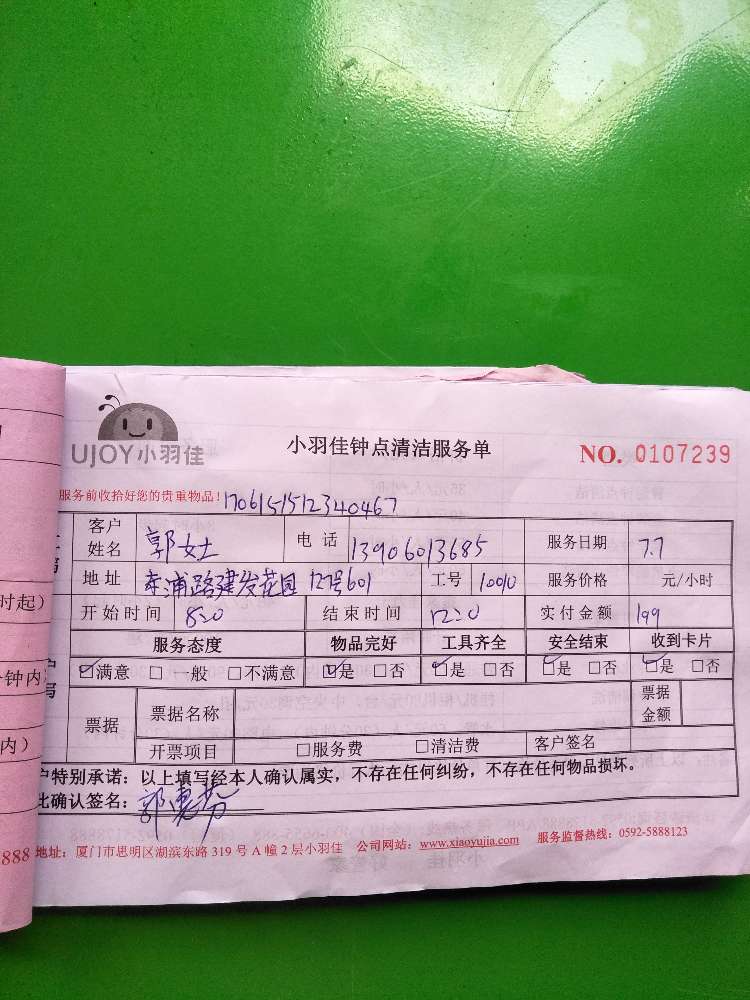 UJOY小羽佳 小羽佳钟点清洁服务单 NO. 0107239
服务前收拾好您的贵重物品！1706151512340467
客户姓名 郭女士 电话 13906013685 服务日期 7.7
地址 浦路建发花园127号601 工号 10010 服务价格 元/小时
时起）
开始时间 8:0 结束时间 12:0 实付金额 199
服务态度 物品完好 工具齐全 安全结束 收到卡片
钟内 ☑满意 □一般 □不满意 ☑是 □否 ☑是 □否 ☑是 □否 ☑是 □否
票据 票据名称 票据金额
内） 开票项目 □服务费 □清洁费 客户签名
户特别承诺：以上填写经本人确认属实，不存在任何纠纷，不存在任何物品损坏。
此确认签名：郭惠芬
888 地址：厦门市思明区湖滨东路 319 号 A 幢 2 层小羽佳 公司网站：www.xiaoyujia.com 服务监督热线：0592-5888123